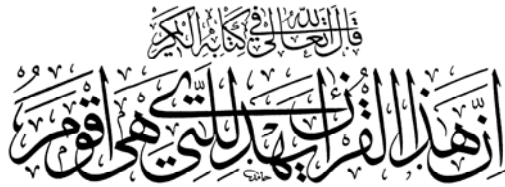 قال الله تعالى في كتابه الكريم
إِنَّ هَذَا الْقُرْآنَ يَهْدِي لِلَّتِي هِيَ أَقْوَمُ